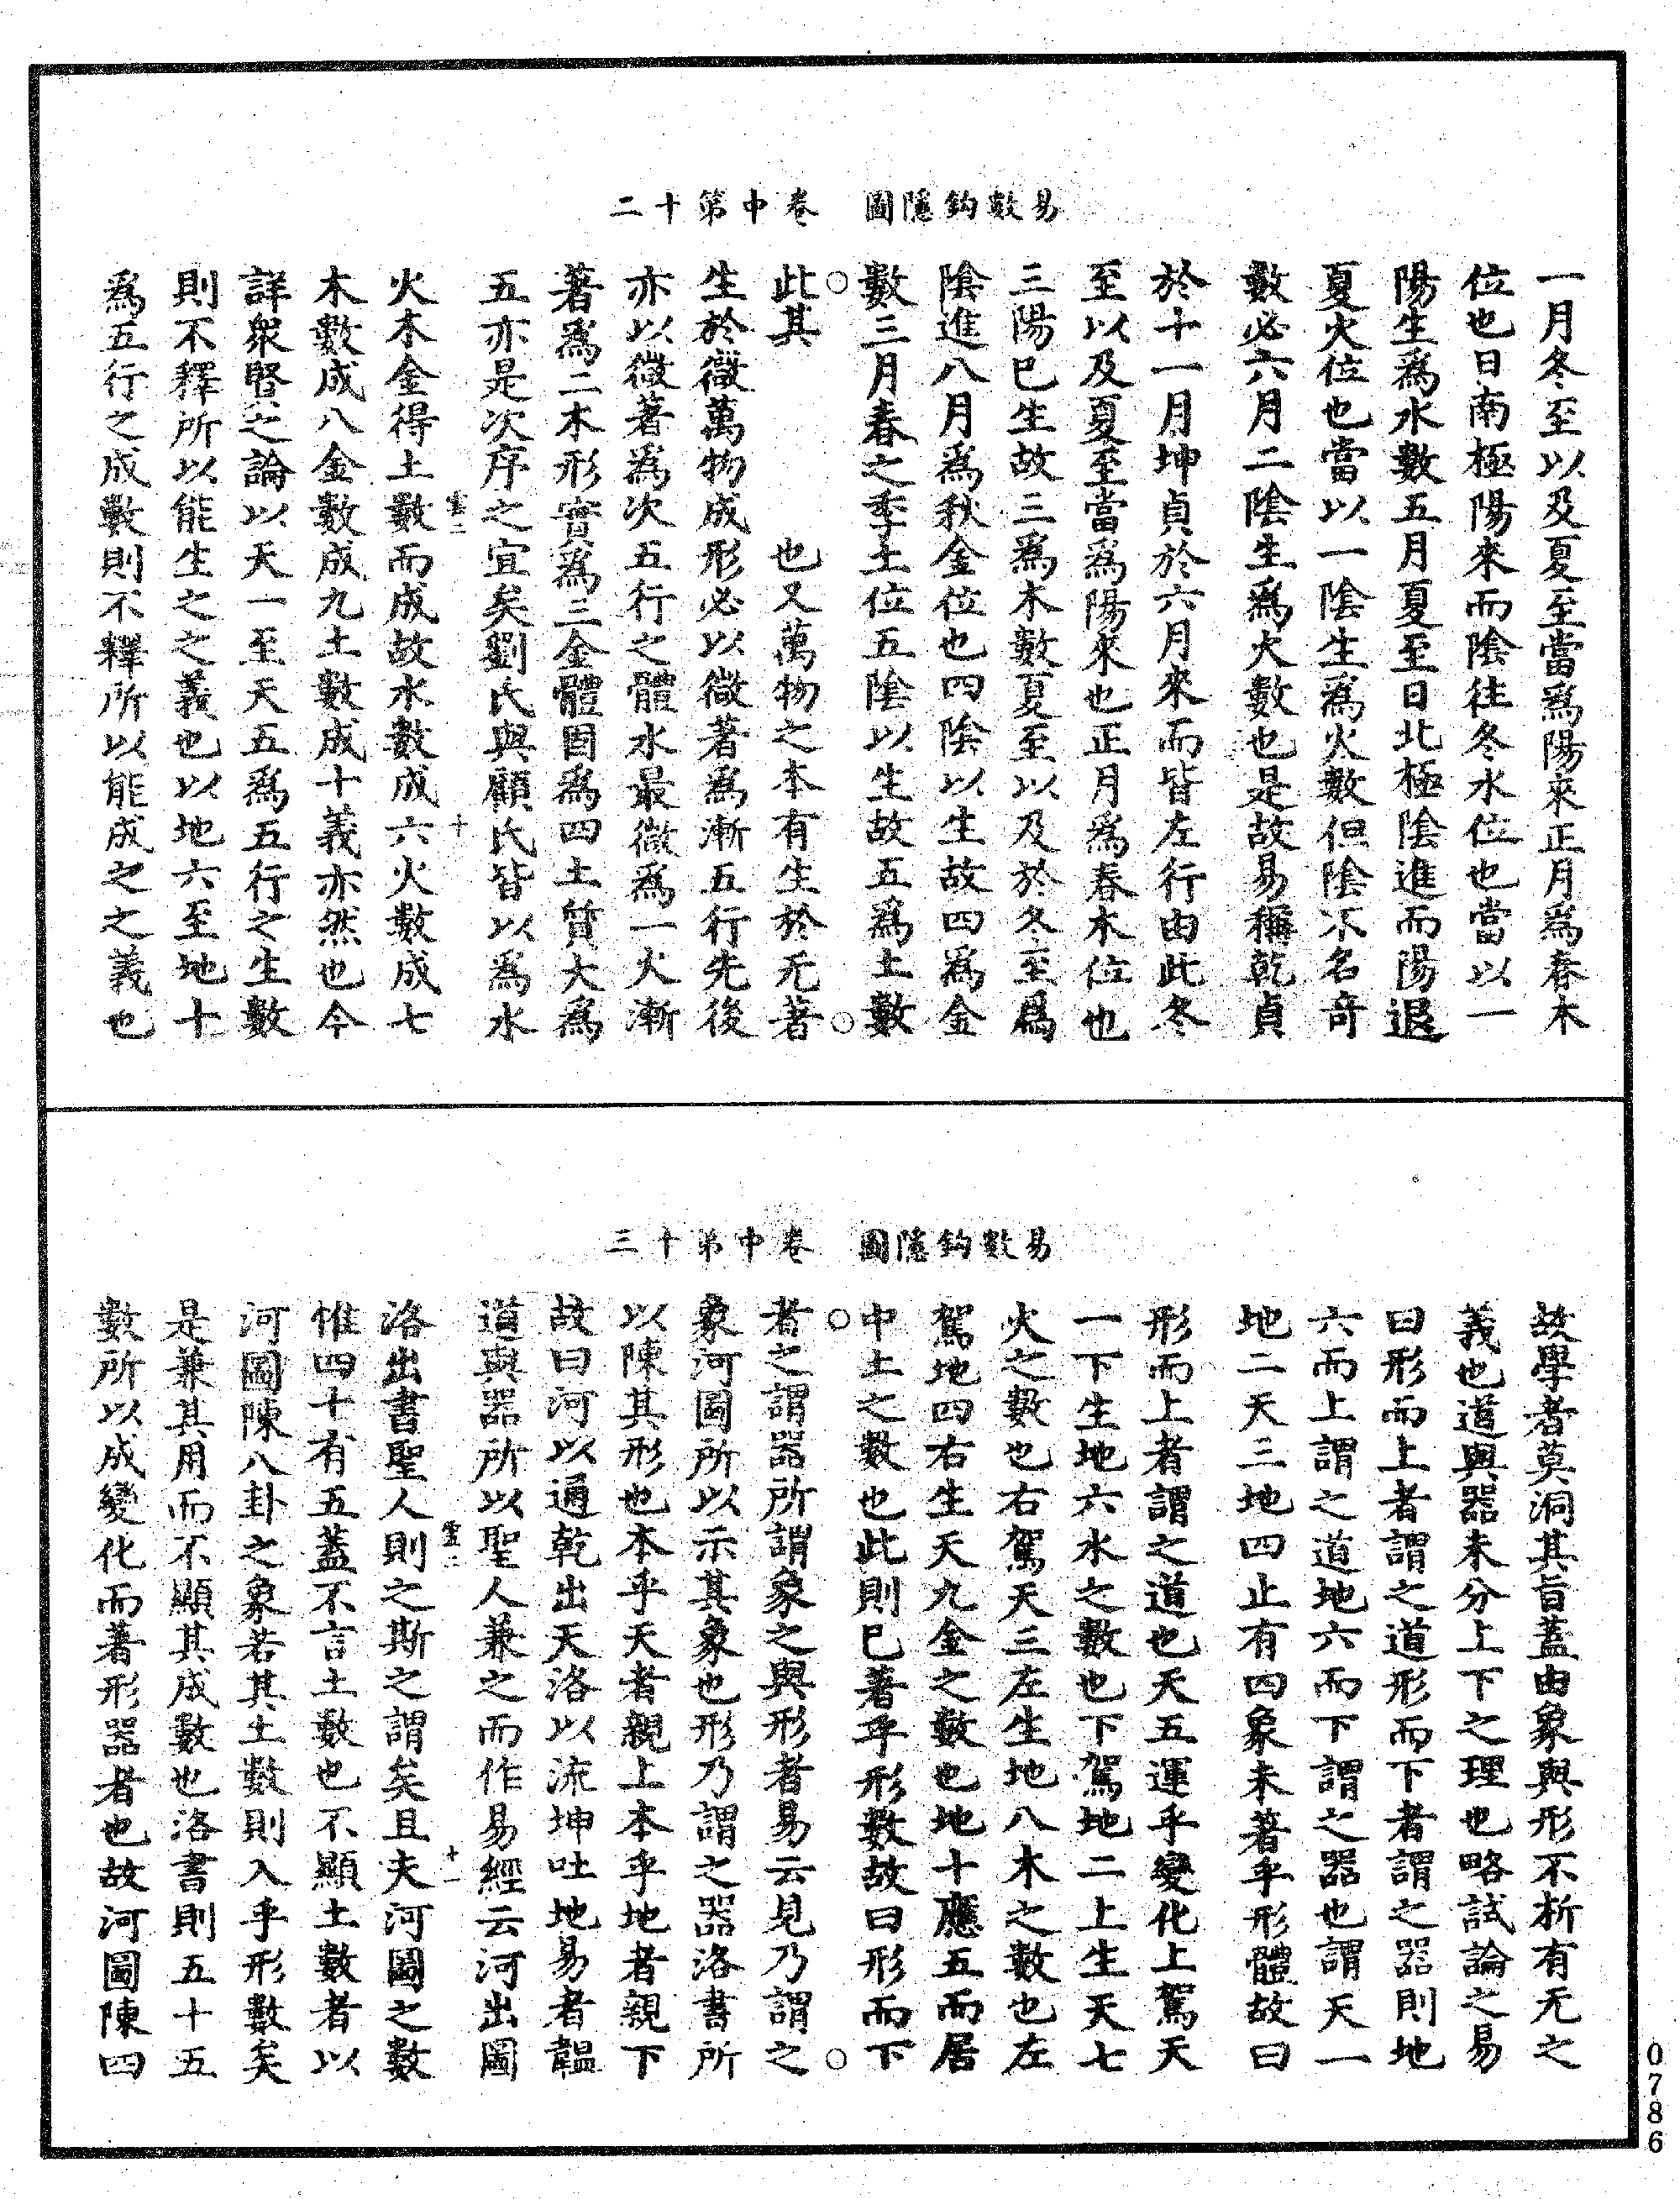 易數鈎隱圖　卷中第十二
一月冬至以及夏至當爲陽來正月爲春木
位也日南極陽來而陰往冬水位也當以一
陽生爲水數五月夏至日北極陰進而陽退
夏火位也當以一陰生爲火數但陰不名奇
數必六月二陰生爲火數也是故易稱乾貞
於十一月坤貞於六月來而皆左行由此冬
至以及夏至當爲陽來也正月爲春木位也
三陽已生故三爲木數夏至以及於冬至爲
陰進八月爲秋金位也四陰以生故四爲金
數三月春之季土位五陰以生故五爲土數
此其　　　　也又萬物之本有生於无著
生於微萬物成形必以微著爲漸五行先後
亦以微著爲次五行之體水最微爲一火漸
著爲二木形實爲三金體固爲四土質大爲
五亦是次序之宜矣劉氏與顧氏皆以爲水
雲二　十
火木金得土數而成故水數成六火數成七
木數成八金數成九土數成十義亦然也今
詳衆賢之論以天一至天五爲五行之生數
則不釋所以能生之之義也以地六至地十
爲五行之成數則不釋所以能成之之義也
易數鈎隱圖　卷中第十三
故學者莫洞其旨蓋由象與形不析有无之
義也道與器未分上下之理也略試論之易
曰形而上者謂之道形而下者謂之器則地
六而上謂之道地六而下謂之器也謂天一
地二天三地四止有四象未著乎形體故曰
形而上者謂之道也天五運乎變化上駕天
一下生地六水之數也下駕地二上生天七
火之數也右駕天三左生地八木之數也左
駕地四右生天九金之數也地十應五而居
中土之數也此則已著乎形數故曰形而下
者之謂器所謂象之與形者易云見乃謂之
象河圖所以示其象也形乃謂之器洛書所
以陳其形也本乎天者親上本乎地者親下
故曰河以通乾出天洛以流坤吐地易者韞
道與器所以聖人兼之而作易經云河出圖
雲二　十一
洛出書聖人則之斯之謂矣且夫河圖之數
惟四十有五蓋不言土數也不顯土數者以
河圖陳八卦之象若其土數則入乎形數矣
是兼其用而不顯其成數也洛書則五十五
數所以成變化而著形器者也故河圖陳四
0786